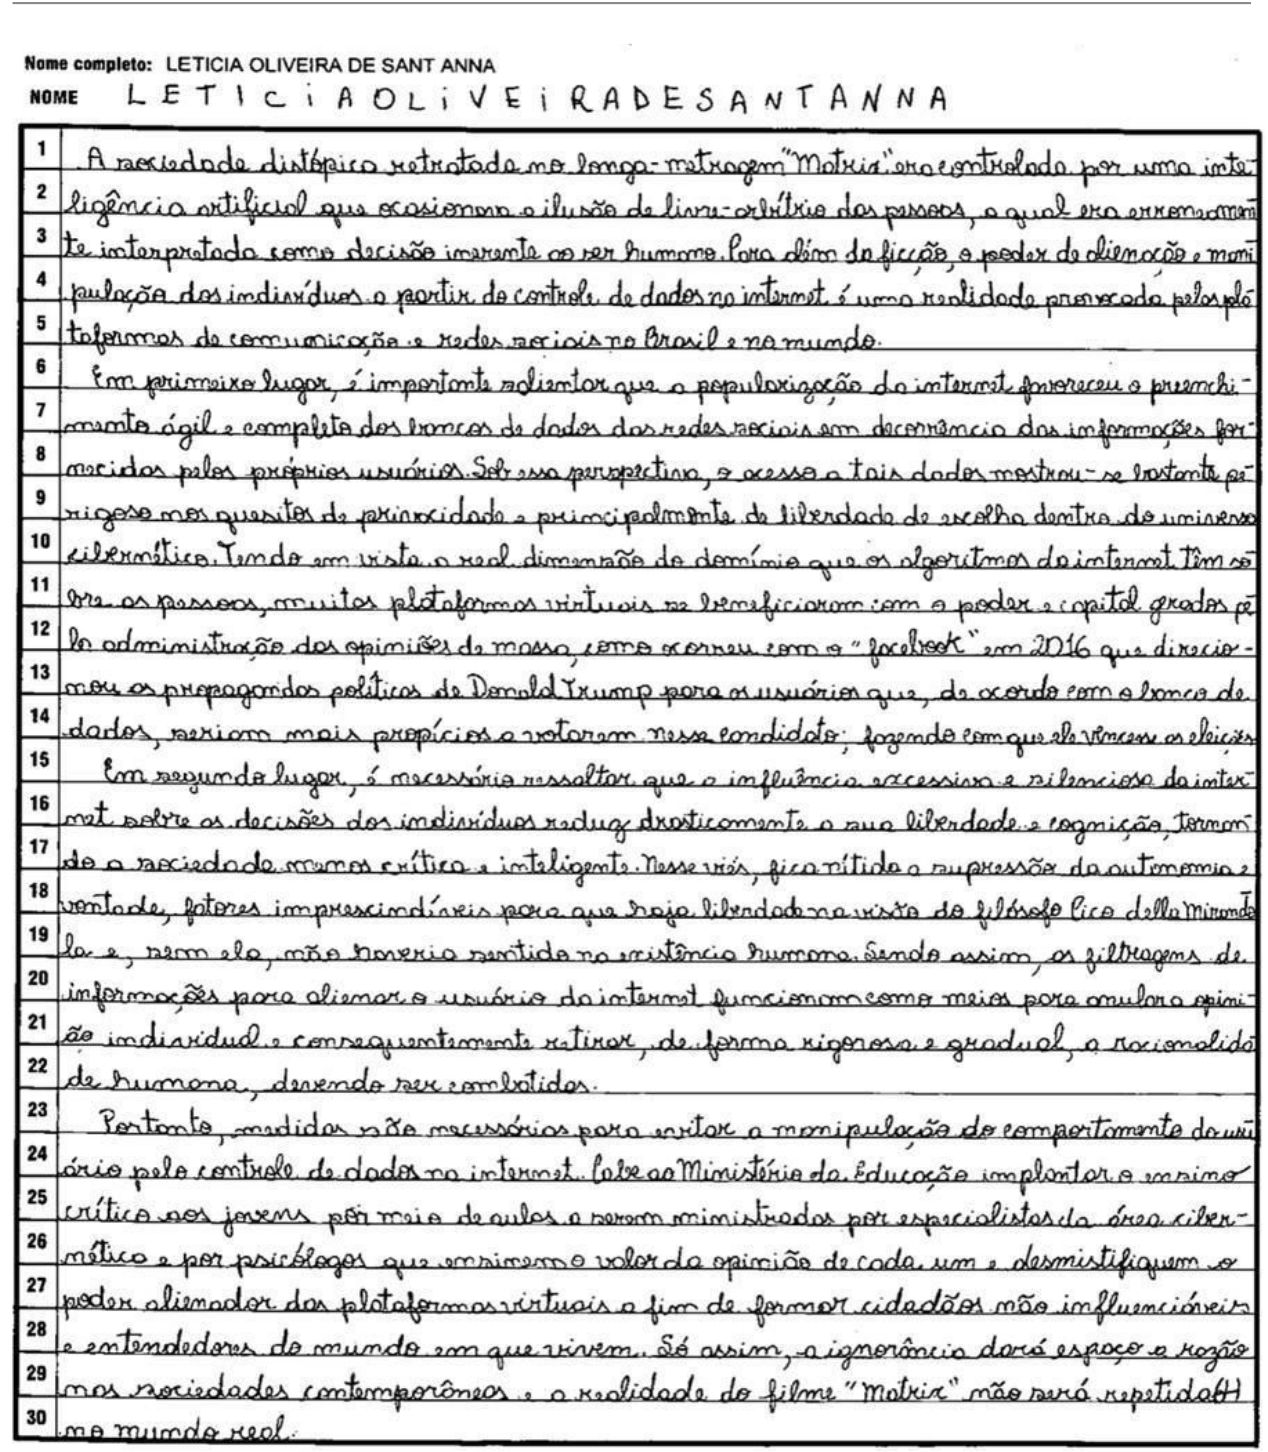 Nome completo: LETICIA OLIVEIRA DE SANT ANNA
NOME LETICIAOLIVEIRADESANTANNA
1 A sociedade distópica retratada no longa-metragem "Matrix" era controlada por uma inte-
2 ligência artificial que ocasionava a ilusão de livre-arbítrio das pessoas, a qual era erroneamen
3 te interpretada como decisão inerente ao ser humano. Para além da ficção, o poder de alienação e mani
4 pulação dos indivíduos a partir do controle de dados na internet é uma realidade provocada pelas pla
5 taformas de comunicação e redes sociais no Brasil e no mundo.
6 Em primeiro lugar, é importante salientar que a popularização da internet favoreceu o preenchi-
7 mento ágil e completo dos bancos de dados das redes sociais em decorrência das informações for-
8 necidas pelos próprios usuários. Sob essa perspectiva, o acesso a tais dados mostrou-se bastante pe-
9 rigoso nos quesitos de privacidade e principalmente de liberdade de escolha dentro do universo
10 cibernético. Tendo em vista a real dimensão do domínio que os algoritmos da internet têm so
11 bre as pessoas, muitas plataformas virtuais se beneficiaram com o poder e capital grados pe
12 la administração das opiniões de massa, como ocorreu com o "facebook" em 2016 que direcio-
13 nou as propagandas políticas de Donald Trump para os usuários que, de acordo com o banco de
14 dados, seriam mais propícios a votarem nesse candidato; fazendo com que ele vencesse as eleições
15 Em segundo lugar, é necessário ressaltar que a influência excessiva e silenciosa da inter-
16 net sobre as decisões dos indivíduos reduz drasticamente a sua liberdade e cognição, tornan
17 do a sociedade menos crítica e inteligente. Nesse viés, fica nítida a supressão da autonomia e
18 vontade, fatores imprescindíveis para que haja liberdade na visão do filósofo Pico della Mirando
19 la e, sem ela, não haveria sentido na existência humana. Sendo assim, as filtragens de
20 informações para alienar o usuário da internet funcionam como meios para anular a opini-
21 ão individual e consequentemente retirar, de forma rigorosa e gradual, a racionalida
22 de humana, devendo ser combatidas.
23 Portanto, medidas são necessárias para evitar a manipulação do comportamento do usu
24 ário pelo controle de dados na internet. Cabe ao Ministério da Educação implantar o ensino
25 crítico aos jovens por meio de aulas a serem ministradas por especialistas da área ciber-
26 nética e por psicólogos que ensinem o valor da opinião de cada um e desmistifiquem o
27 poder alienador das plataformas virtuais a fim de formar cidadãos não influenciáveis
28 e entendedores do mundo em que vivem. Só assim, a ignorância dará espaço a razão
29 nas sociedades contemporâneas e a realidade do filme "Matrix" não será repetida
30 no mundo real.